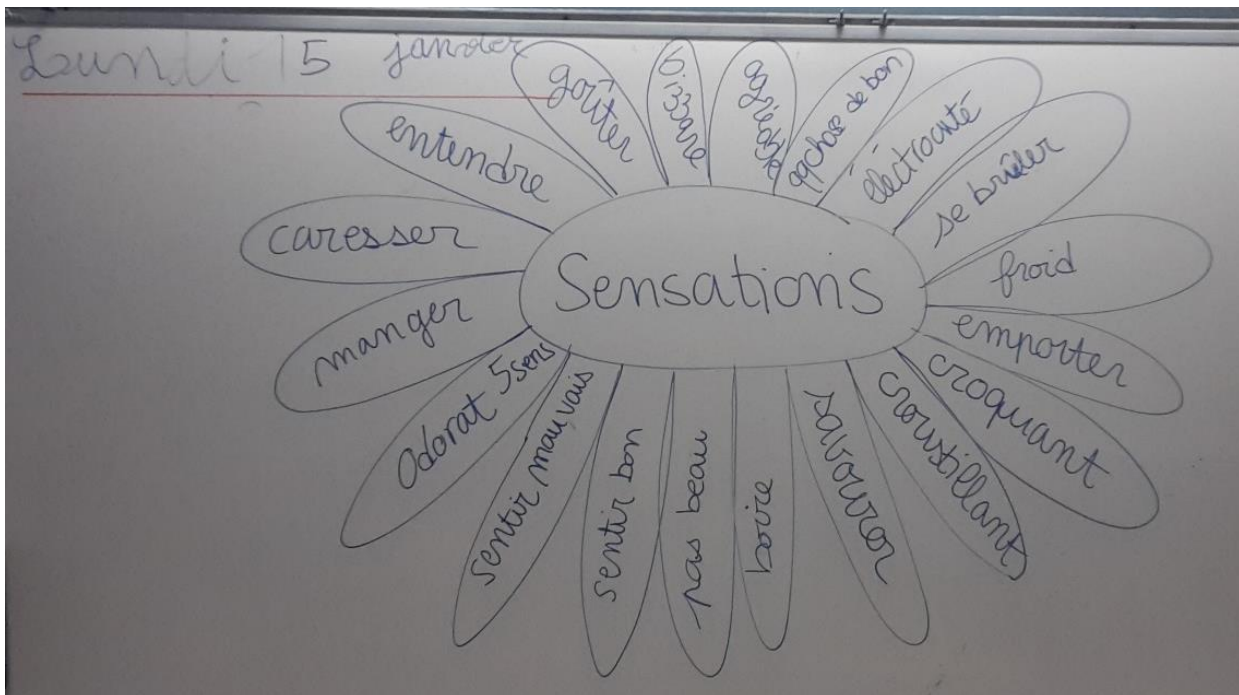 Lundi 15 janvier
Sensations
goûter
bizzare
agréable
qqchose de bon
électrocuté
se brûler
froid
emporter
croquant
croustillant
savourer
boire
pas beau
sentir bon
sentir mauvais
odorat 5 sens
manger
caresser
entendre